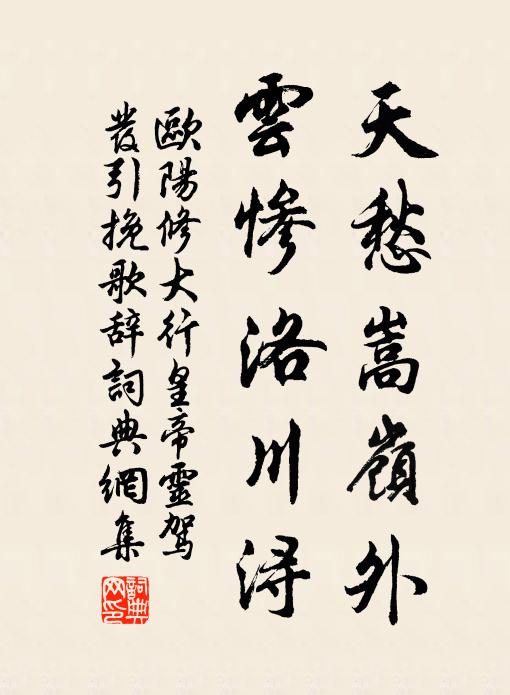 天愁嵩嶺外
雲慘洛川浔
歐陽修大行皇帝靈駕
發引挽歌辞詞典網集
詞典网印